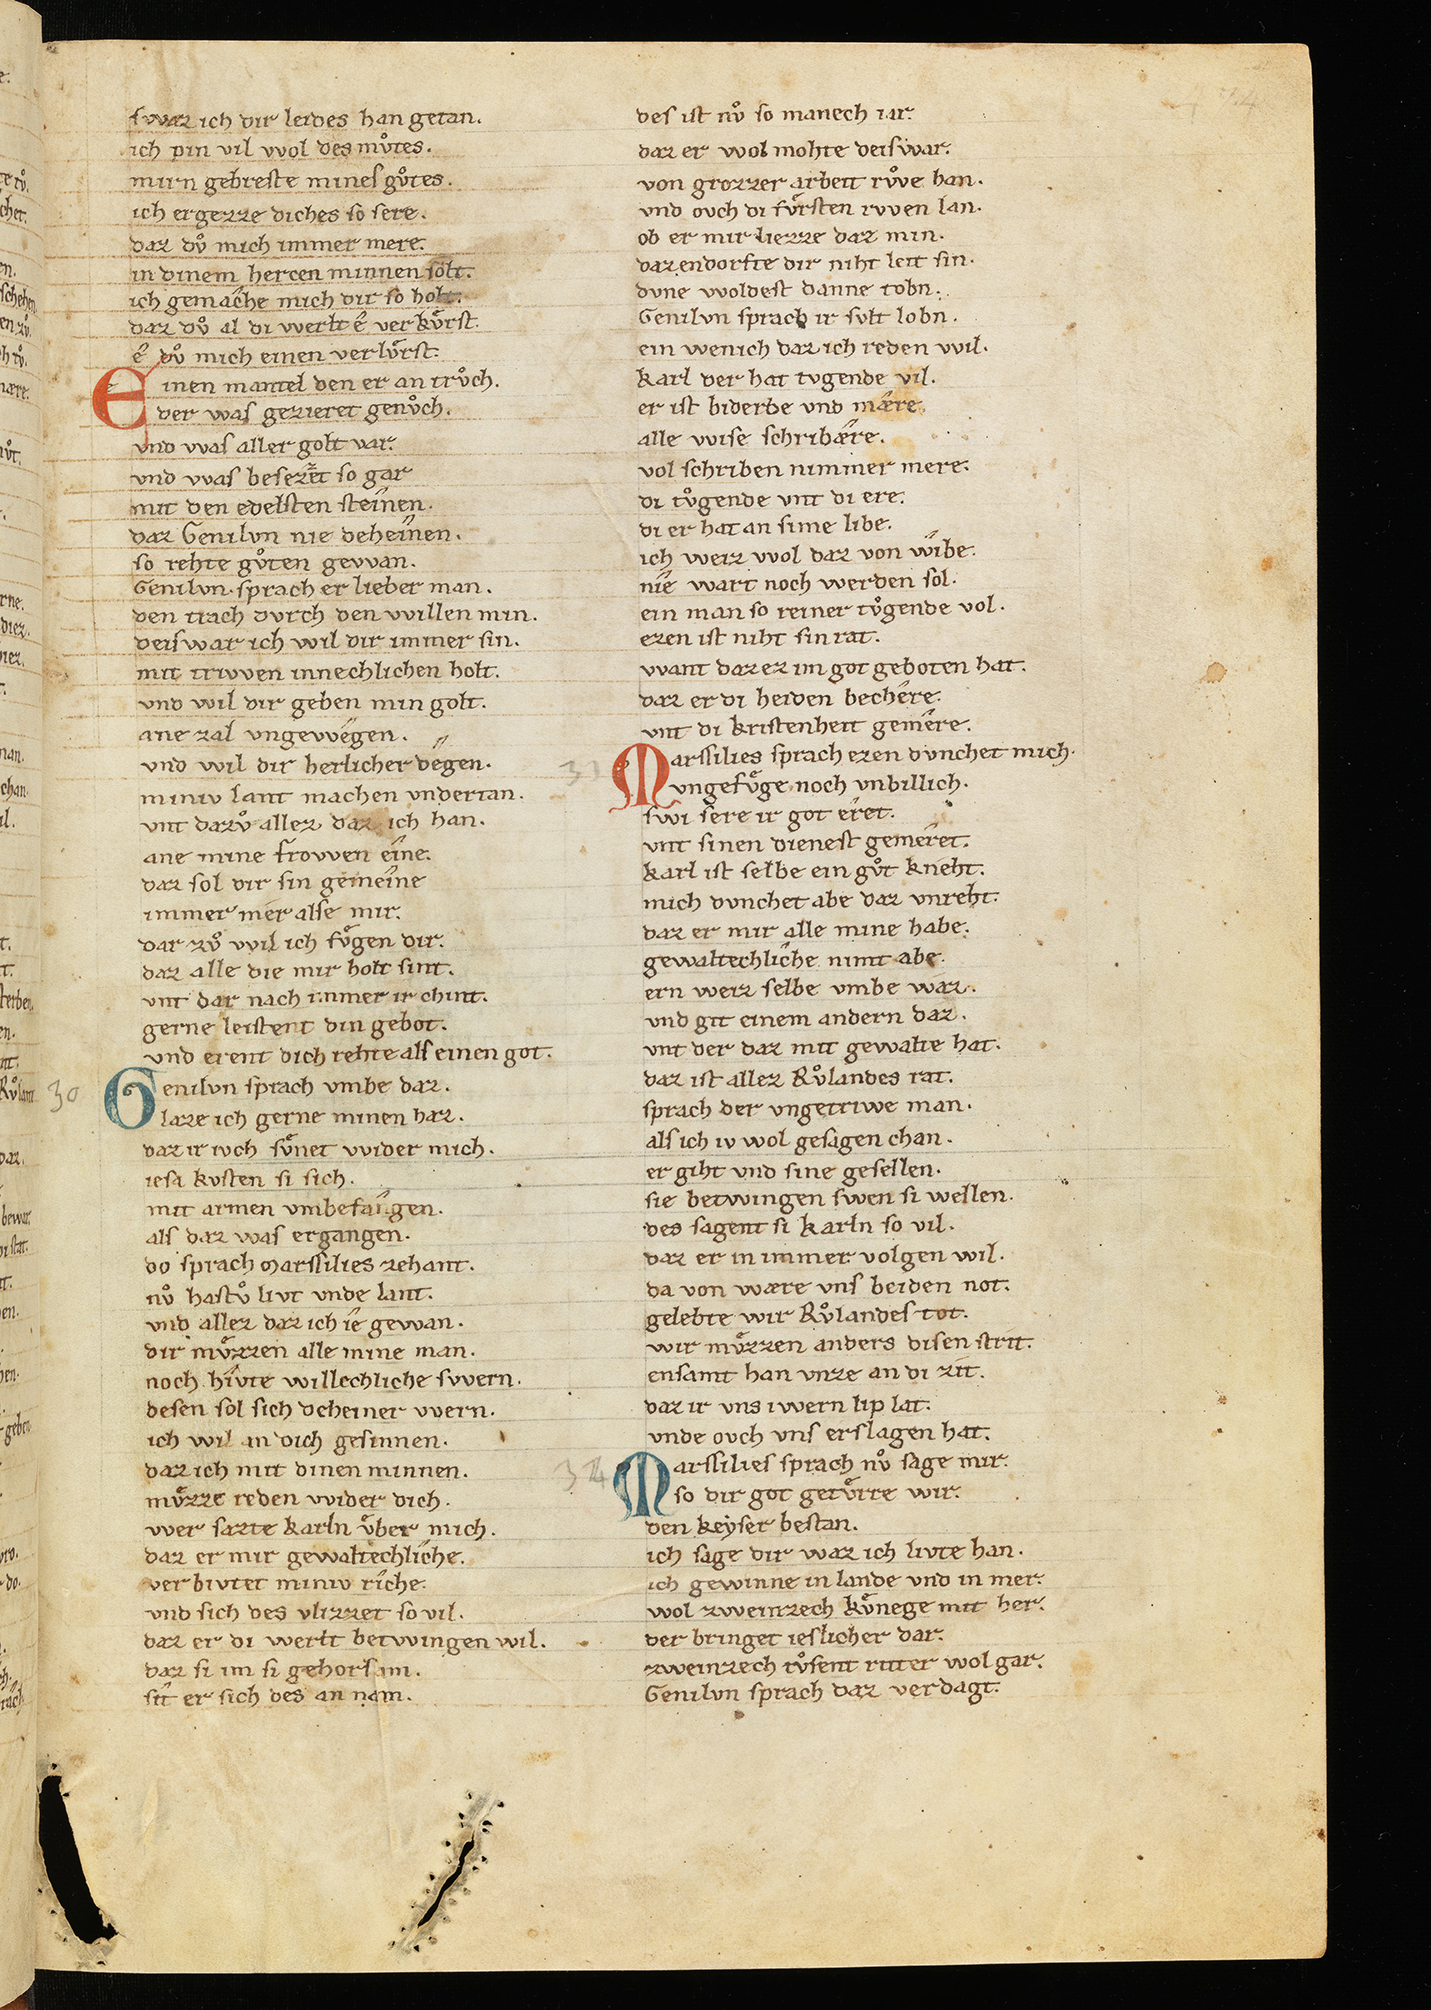 swaz ich dir leides han getan.
ich pin vil wol des muͦtes.
mirn gebreste mines guͦtes.
ich ergezze diches so sere.
daz duͦ mich immer mere.
in dinem hercen minnen solt.
ich gemache mich dir so holt.
daz duͦ al di werlt ê verkuͤrst.
ê duͦ mich einen verluͤrst.
Einen mantel den er an truͦch.
der was gezieret genuͦch.
vnd was aller golt var.
vnd was besezzet so gar
mit den edelsten steînen.
daz Genilvn nie deheînen.
so rehte guͦten gewan.
Genilvn. sprach er lieber man.
den trach dvrch den willen min.
deiswar ich wil dir immer sin.
mit triwen innechlichen holt.
vnd wil dir geben min golt.
ane zal vngewegen.
vnd wil dir herlicher degen.
miniv lant machen vndertan.
vnt dazuͦ allez daz ich han.
ane mine frowen eîne.
daz sol dir sin gemeîne
immer mer alse mir.
dar zuͦ wil ich fuͤgen dir.
daz alle die mir holt sint.
vnt dar nach immer ir chint.
gerne leistent din gebot.
vnd erent dich rehte als einen got.
Genilvn sprach vmbe daz.
laze ich gerne minen haz.
daz ir iwch suͤnet wider mich.
iesa kvsten si sich.
mit armen vmbefangen.
als daz was ergangen.
do sprach Marssilies zehant.
nuͦ hastuͦ livt vnde lant.
vnd allez daz ich îe gewan.
dir muͤzzen alle mine man.
noch hîvte willechliche swern.
desen sol sich dcheiner wern.
ich wil an dich gesinnen.
daz ich mit dinen minnen.
muͤzze reden wider dich.
wer sazte karln vͤber mich.
daz er mir gewaltechlîche.
verbivtet miniv rîche.
vnd sich des vlizzet so vil.
daz er di werlt betwingen wil.
daz si im si gehorsam.
sît er sich des an nam.
des ist nuͦ so manech iar.
daz er wol mohte deiswar.
von grozzer arbeit ruͦwe han.
vnd ovch di fuͤrsten rvwen lan.
ob er mir liezze daz min.
daz endorfte dir niht leit sin.
dvne woldest danne tobn.
Genilvn sprach ir svlt lobn.
ein wenich daz ich reden wil.
karl der hat tvgende vil.
er ist biderbe vnd mære.
alle wise schribære.
vol schriben nimmer mere.
di tuͦgende vnt di ere.
di er hat an sime libe.
ich weiz wol daz von wîbe.
nîe wart noch werden sol.
ein man so reiner tuͦgende vol.
ezen ist niht sin rat.
want daz ez im got geboten hat.
daz er di heiden bechêre.
vnt di kristenheit gemêre.
Marssilies sprach ezen dvnchet mich.
vngefuͤge noch vnbillich.
swi sere ir got êret.
vnt sinen dienest gemêret.
karl ist selbe ein guͦt kneht.
mich dvnchet abe daz vnreht.
daz er mir alle mine habe.
gewaltechlîche nimt abe.
ern weiz selbe vmbe waz.
vnd git einem andern daz.
vnt der daz mit gewalte hat.
daz ist allez Ruͦlandes rat.
sprach der vngetriwe man.
als ich iv wol gesagen chan.
er giht vnd sine gesellen.
sie betwingen swen si wellen.
des sagent si karln so vil.
daz er in immer volgen wil.
da von wære vns beiden not.
gelebte wir Ruͦlandes tot.
wir muͤzzen anders disen strit.
ensamt han vnze an di zît.
daz ir vns iwern lip lat.
vnde ovch vns erslagen hat.
Marssilies sprach nuͦ sage mir.
so dir got getuͤrre wir.
den keyser bestan.
ich sage dir waz ich livte han.
ich gewinne in lande vnd in mer.
wol zweinzech kuͤnege mit her.
der bringet ieslicher dar.
zweinzech tuͦsent ritter wol gar.
Genilvn sprach daz verdagt.
30